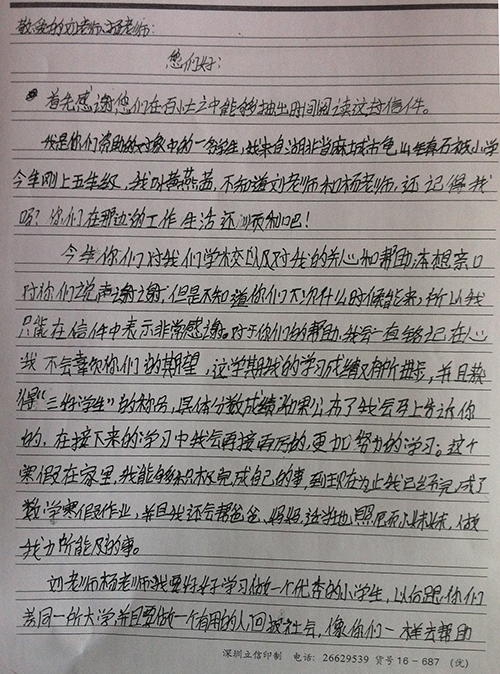 敬爱的刘老师、杨老师:
您们好:
首先感谢您们在百忙之中能够抽出时间阅读这封信件。
我是你们资助的对象中的一名学生,我来自湖北省麻城市龟山镇石板小学
今年刚上五年级,我叫黄燕茜,不知道刘老师和杨老师,还记得我
吗?你们在那边的工作生活还顺利吧!
今年你们对我们学校以及对我的关心和帮助,本想亲口
对你们说声谢谢,但是不知道你们下次什么时候能来,所以我
只能在信件中表示非常感谢。对于你们的帮助,我会一直铭记在心
我不会辜负你们的期望,这学期我的学习成绩又有所进步,并且获
得“三好学生”的称号,具体分数成绩如果公布了我会马上告诉你
的,在接下来的学习中我会再接再厉的,更加努力的学习。这个
寒假在家里,我能够积极完成自己的事,到现在为止我已经完成了
数学寒假作业,并且我还会帮爸爸、妈妈,照顾小妹妹,做
我力所能及的事。
刘老师杨老师我要好好学习做一个优秀的小学生,以后跟你们
考同一所大学,并且要做一个有用的人,回报社会,像你们一样去帮助
深圳立信印制 电话:26629539 货号16-687 (优)